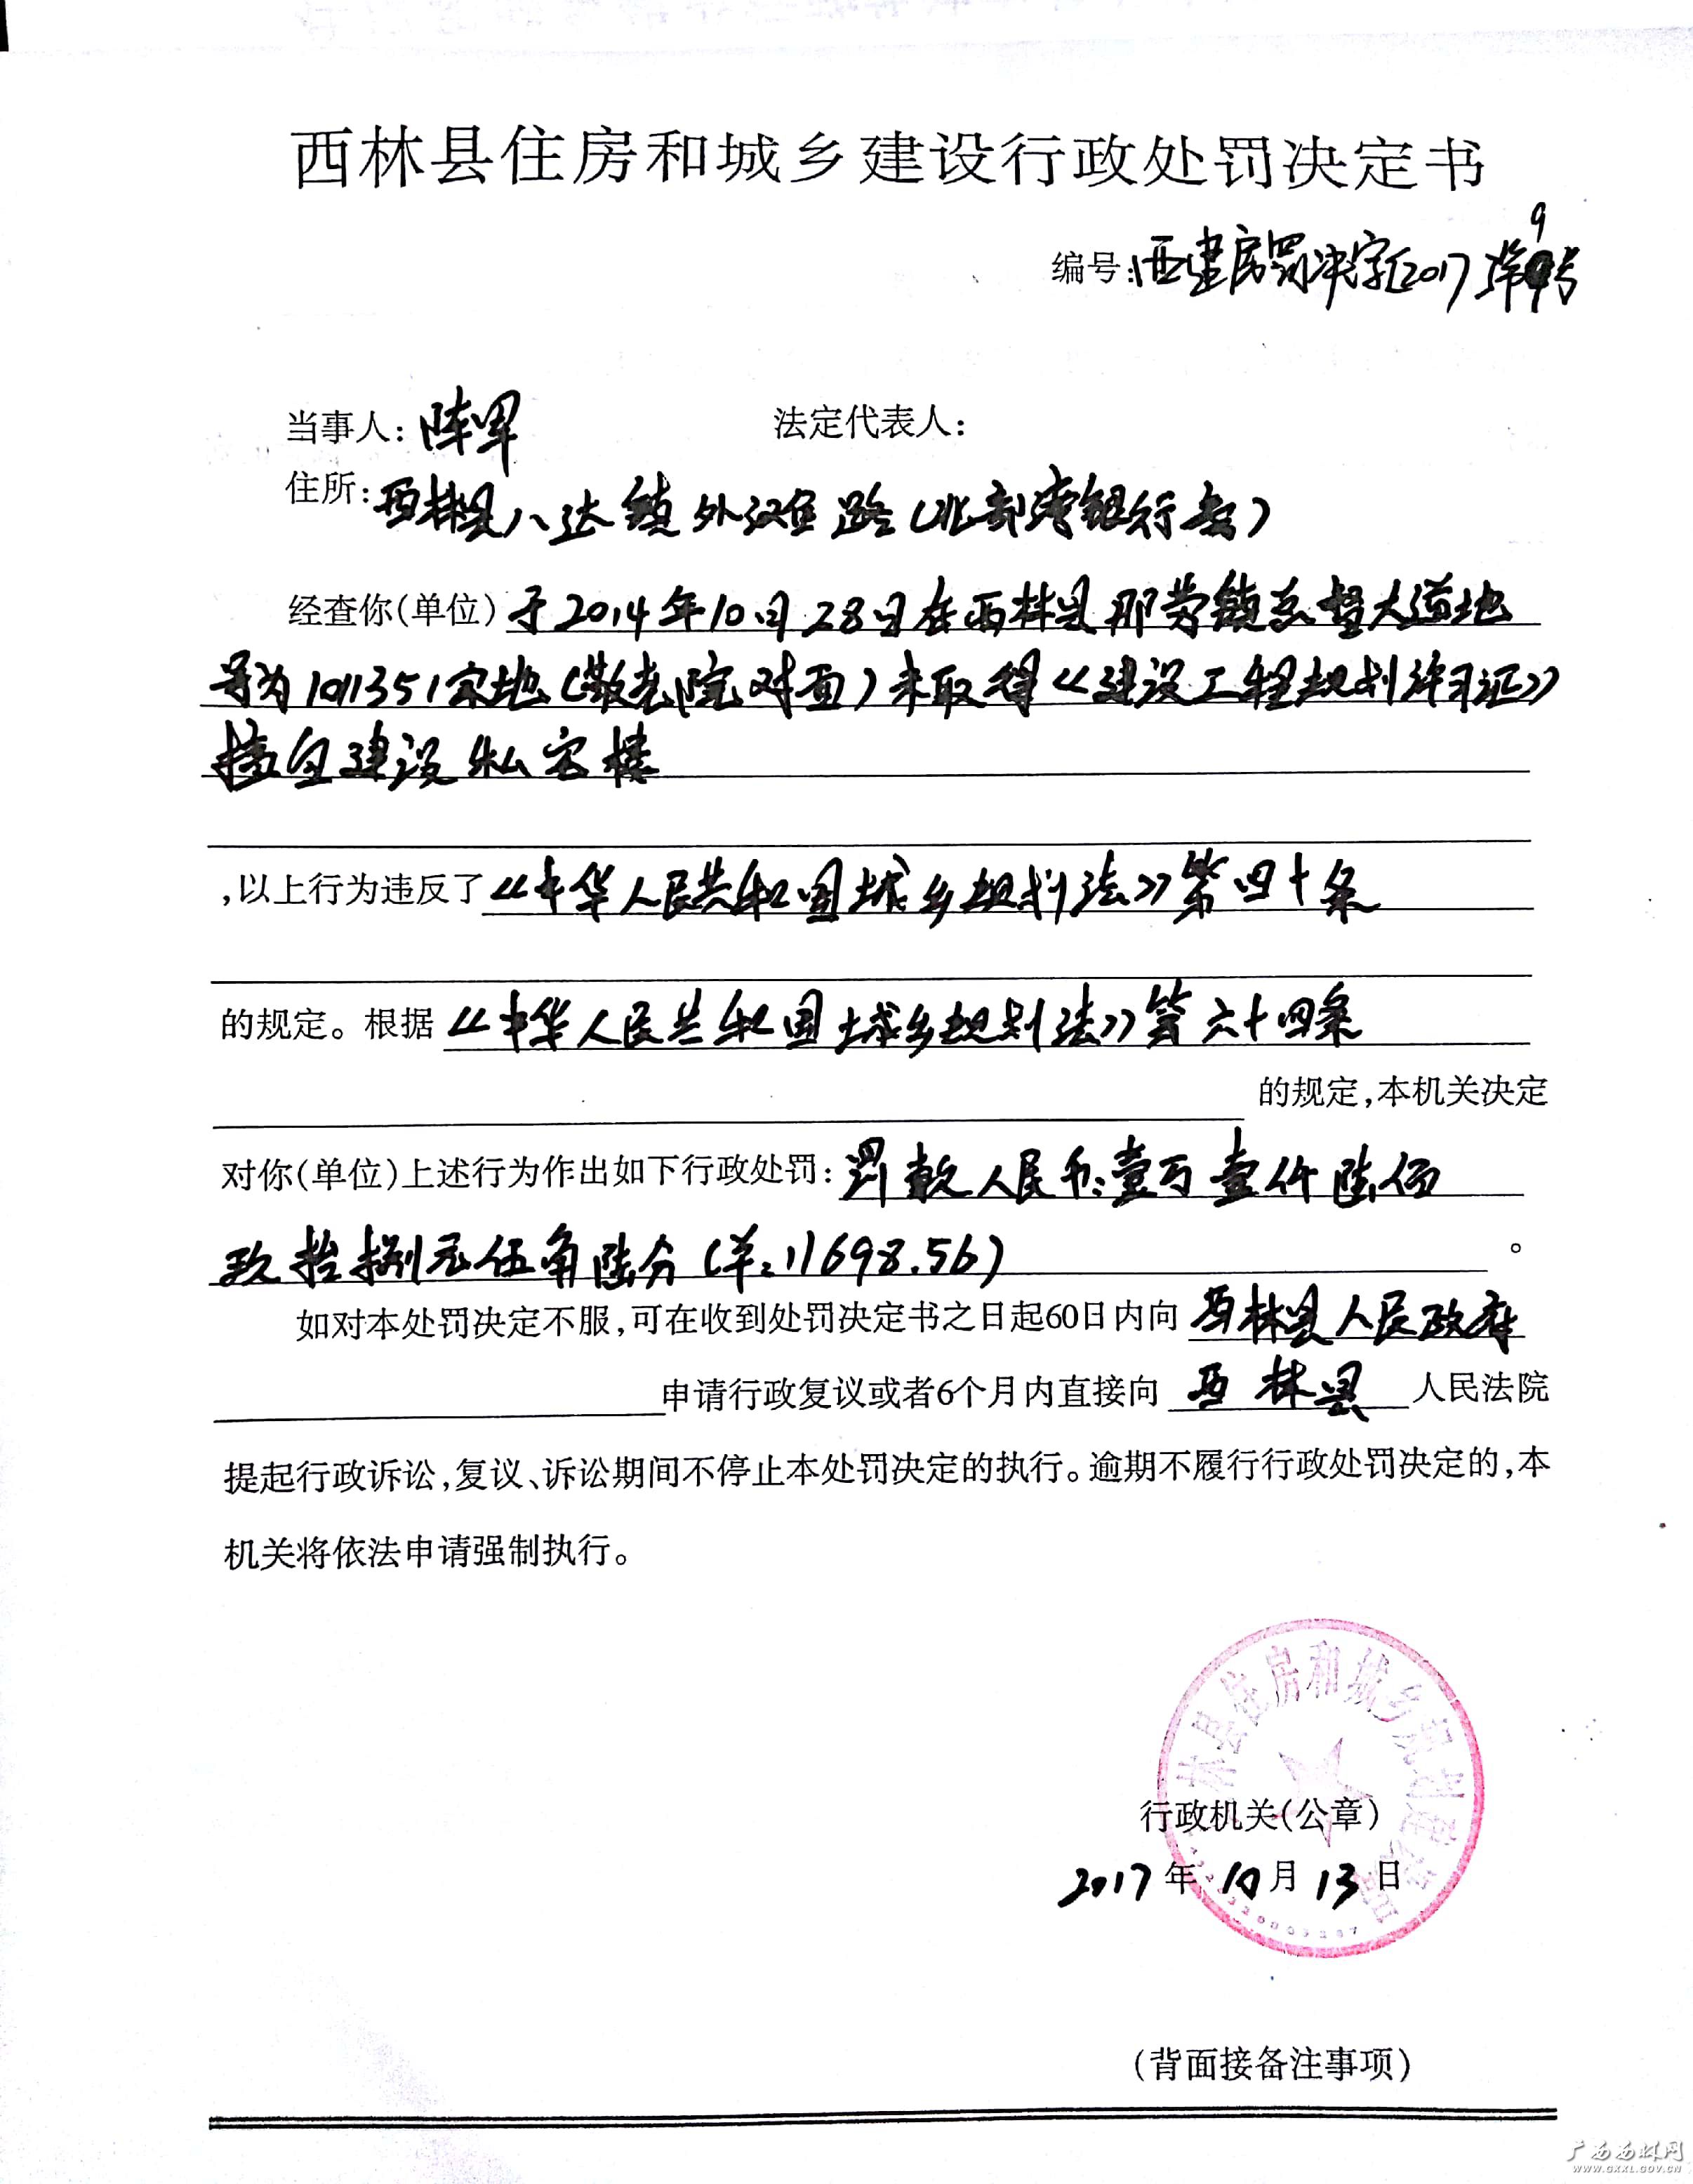 西林县住房和城乡建设行政处罚决定书
9
编号:西建房罚决字[2017]第9号
当事人: 陈军 法定代表人:
住所: 西林县八达镇外滩鱼路(北部湾银行旁)
经查你(单位)于2014年10月28日在西林县那劳镇总督大道地
号为1011351宗地(敬老院对面)未取得《建设工程规划许可证》
擅自建设私宅楼
,以上行为违反了《中华人民共和国城乡规划法》第四十条
的规定。根据《中华人民共和国城乡规划法》第六十四条
的规定,本机关决定
对你(单位)上述行为作出如下行政处罚: 罚款人民币:壹万壹仟陆佰
玖拾捌元伍角陆分(羊:11698.56)。
如对本处罚决定不服,可在收到处罚决定书之日起60日内向西林县人民政府
申请行政复议或者6个月内直接向 西林县 人民法院
提起行政诉讼,复议、诉讼期间不停止本处罚决定的执行。逾期不履行行政处罚决定的,本
机关将依法申请强制执行。
林县住房和城乡规划建设局
行政机关(公章)
2017年10月13日
(背面接备注事项)
广西西林网
WWW.GXXL.GOV.CN